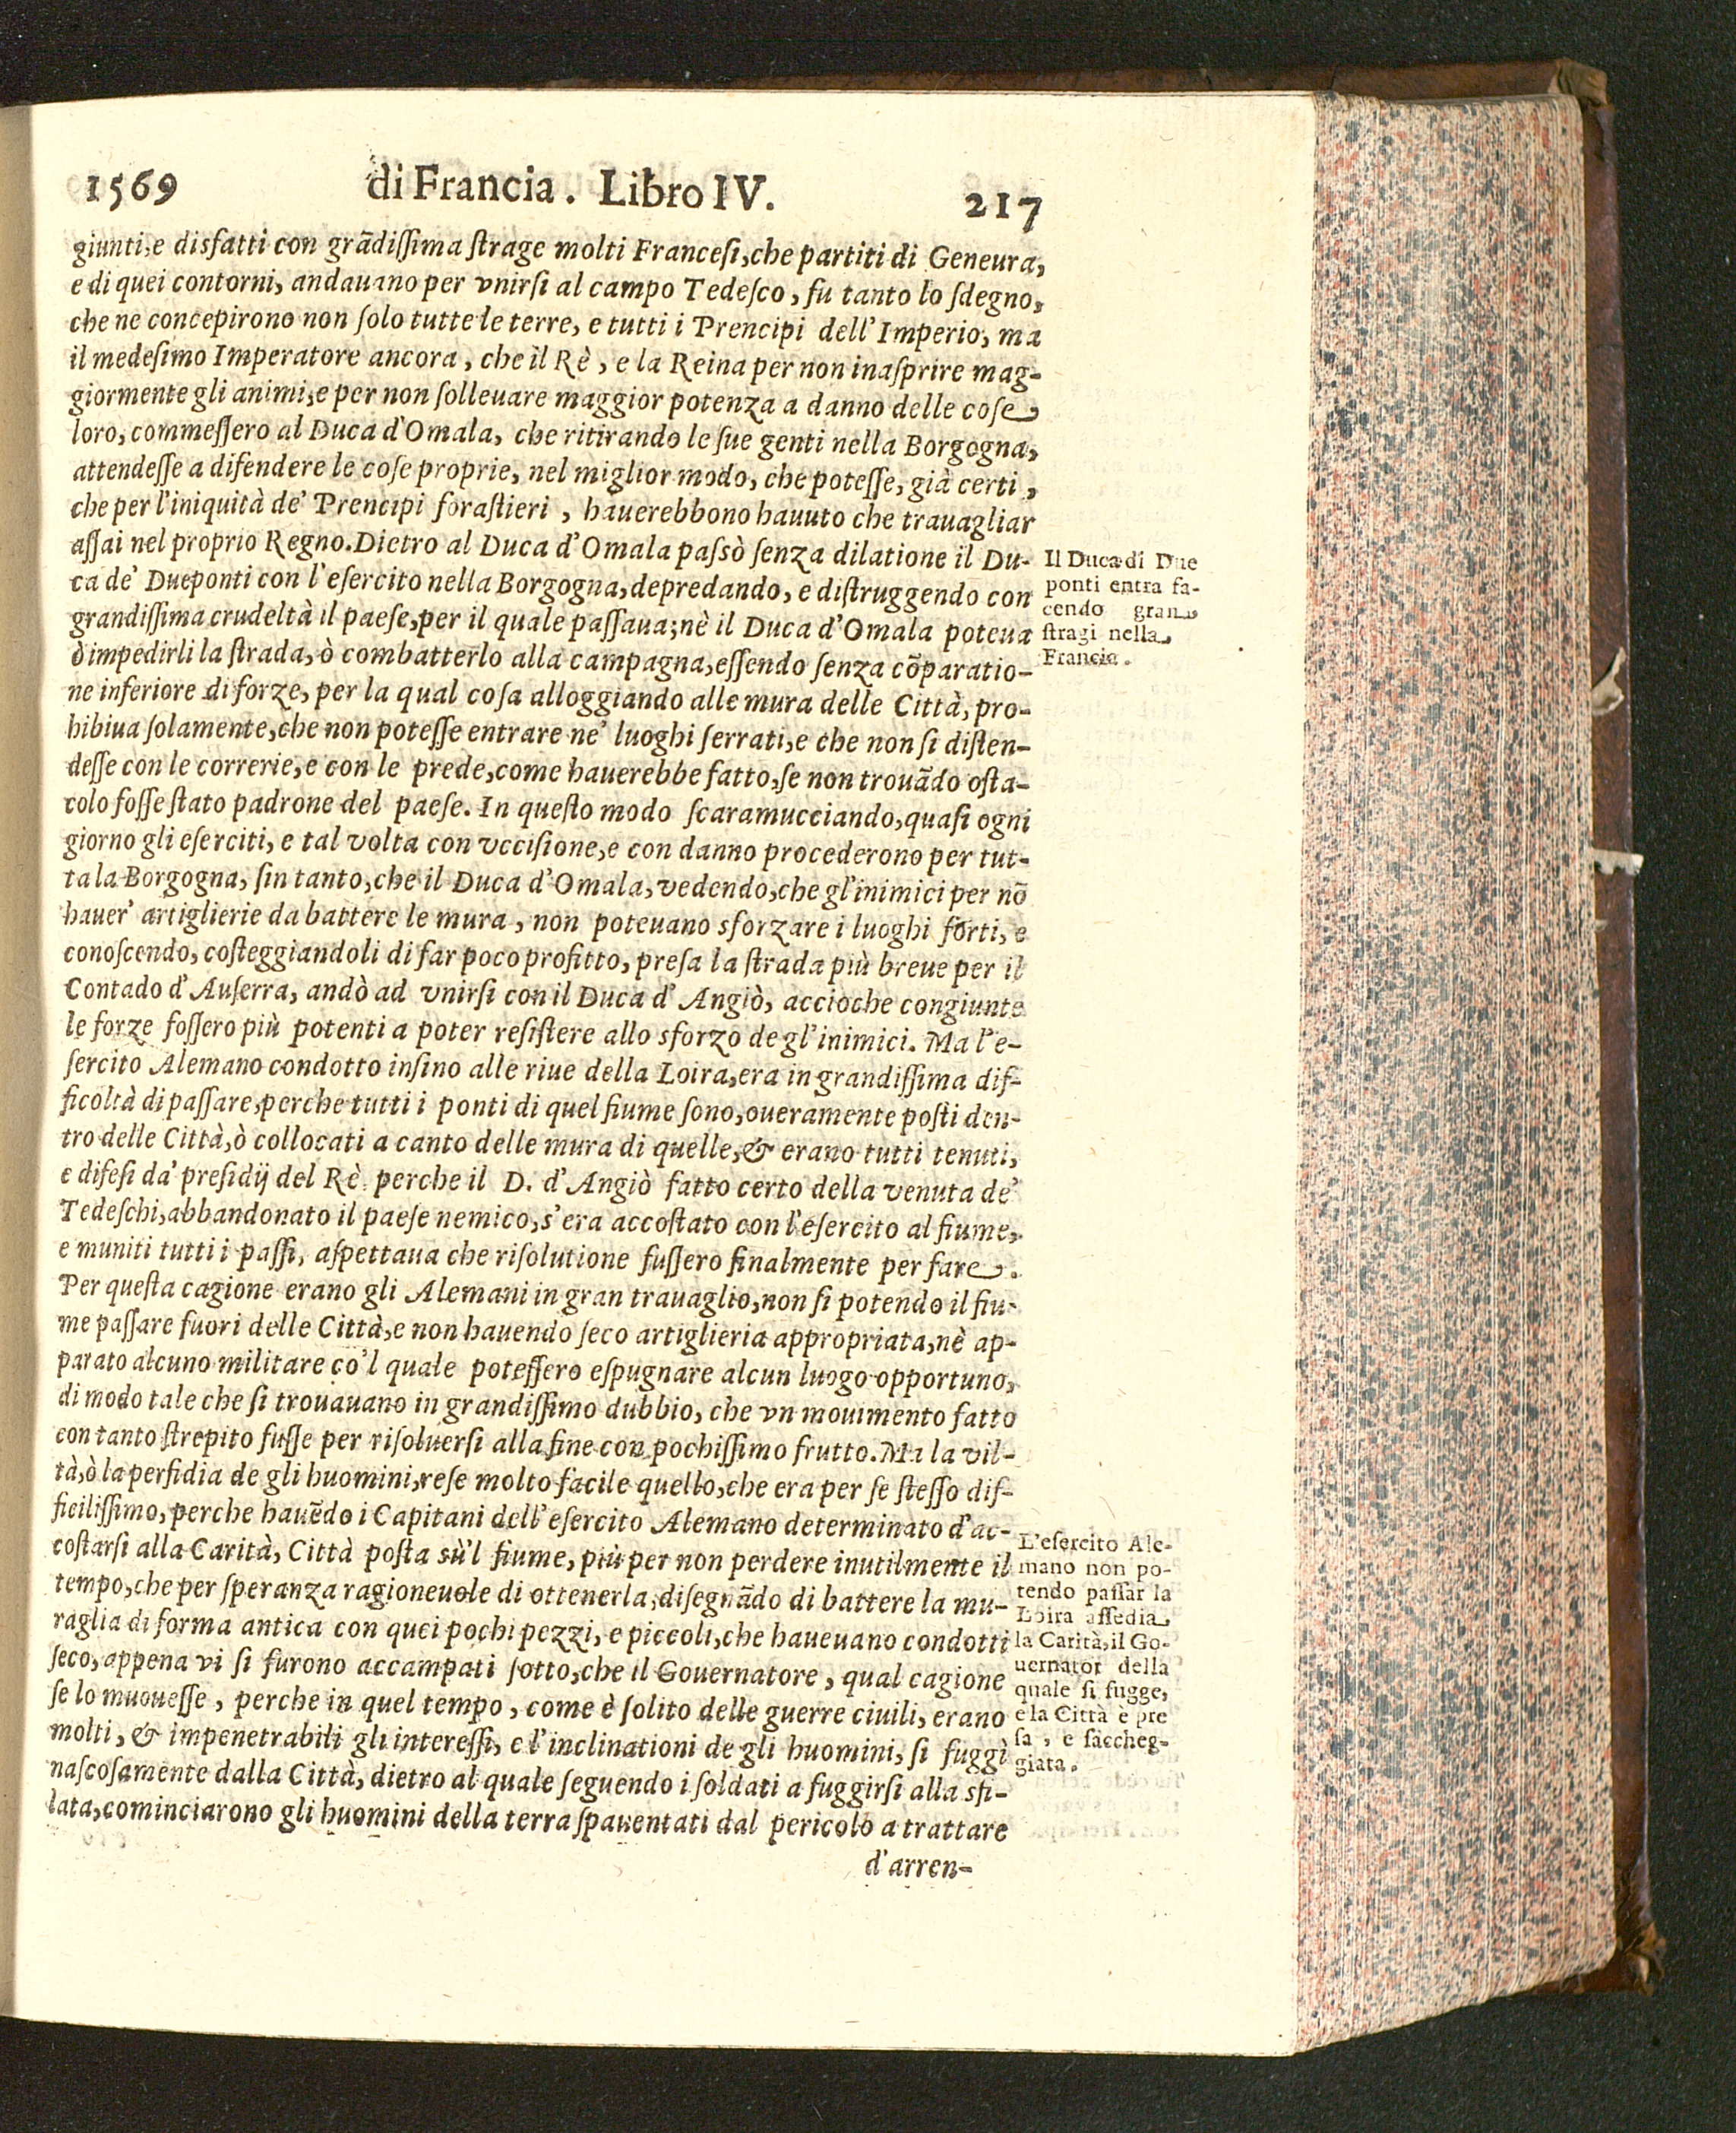 1569 di Francia. Libro IV. 217
giunti, e disfatti con grãdiſſima ſtrage molti Franceſi, che partiti di Geneura,
e di quei contorni, andauano per vnirſi al campo Tedeſco, fu tanto lo ſdegno,
che ne concepirono non ſolo tutte le terre, e tutti i Prencipi dell'Imperio, ma
il medeſimo Imperatore ancora, che il Rè, e la Reina per non inaſprire mag-
giormente gli animi, e per non ſolleuare maggior potenza a danno delle coſe
loro, commeſſero al Duca d'Omala, che ritirando le ſue genti nella Borgogna,
attendeſſe a difendere le coſe proprie, nel miglior modo, che poteſſe, già certi,
che per l'iniquità de' Prencipi foraſtieri, hauerebbono hauuto che trauagliar
aſſai nel proprio Regno. Dietro al Duca d'Omala paſsò ſenza dilatione il Du-
ca de' Dueponti con l'eſercito nella Borgogna, depredando, e diſtruggendo con
grandiſſima crudeltà il paeſe, per il quale paſſaua; nè il Duca d'Omala poteua
ò impedirli la ſtrada, ò combatterlo alla campagna, eſſendo ſenza cõparatio-
ne inferiore di forze, per la qual coſa alloggiando alle mura delle Città, pro-
hibiua ſolamente, che non poteſſe entrare ne' luoghi ſerrati, e che non ſi diſten-
deſſe con le correrie, e con le prede, come hauerebbe fatto, ſe non trouãdo oſta-
colo foſſe ſtato padrone del paeſe. In queſto modo ſcaramucciando, quaſi ogni
giorno gli eſerciti, e tal volta con vcciſione, e con danno procederono per tut-
ta la Borgogna, ſin tanto, che il Duca d'Omala, vedendo, che gl'inimici per nõ
hauer' artiglierie da battere le mura, non poteuano sforzare i luoghi forti, e
conoſcendo, coſteggiandoli di far poco profitto, preſa la ſtrada più breue per il
Contado d'Auſerra, andò ad vnirſi con il Duca d'Angiò, accioche congiunte
le forze foſſero più potenti a poter reſiſtere allo sforzo de gl'inimici. Ma l'e-
ſercito Alemano condotto inſino alle riue della Loira, era in grandiſſima dif-
ficoltà di paſſare, perche tutti i ponti di quel fiume ſono, oueramente poſti den-
tro delle Città, ò collocati a canto delle mura di quelle, & erano tutti tenuti,
e difeſi da' preſidij del Rè, perche il D. d'Angiò fatto certo della venuta de'
Tedeſchi, abbandonato il paeſe nemico, s'era accoſtato con l'eſercito al fiume,
e muniti tutti i paſſi, aſpettaua che riſolutione fuſſero finalmente per fare.
Per queſta cagione erano gli Alemani in gran trauaglio, non ſi potendo il fiu-
me paſſare fuori delle Città, e non hauendo ſeco artiglieria appropriata, nè ap-
parato alcuno militare co'l quale poteſſero eſpugnare alcun luogo opportuno,
di modo tale che ſi trouauano in grandiſſimo dubbio, che vn mouimento fatto
con tanto ſtrepito fuſſe per riſoluerſi alla fine con pochiſſimo frutto. Ma la vil-
tà, ò la perfidia de gli huomini, reſe molto facile quello, che era per ſe ſteſſo dif-
ficiliſſimo, perche hauẽdo i Capitani dell'eſercito Alemano determinato d'ac-
coſtarſi alla Carità, Città poſta sù'l fiume, più per non perdere inutilmente il
tempo, che per ſperanza ragioneuole di ottenerla, diſegnãdo di battere la mu-
raglia di forma antica con quei pochi pezzi, e piccoli, che haueuano condotti
ſeco, appena vi ſi furono accampati ſotto, che il Gouernatore, qual cagione
ſe lo muoueſſe, perche in quel tempo, come è ſolito delle guerre ciuili, erano
molti, & impenetrabili gli intereſſi, e l'inclinationi de gli huomini, ſi fuggì
naſcoſamente dalla Città, dietro al quale ſeguendo i ſoldati a fuggirſi alla sfi-
lata, cominciarono gli huomini della terra ſpauentati dal pericolo a trattare
d'arren-
Il Duca di Due
ponti entra fa-
cendo gran
ſtragi nella
Francia.
L'eſercito Ale-
mano non po-
tendo paſſar la
Loira aſſedia
la Carità, il Go-
uernator della
quale ſi fugge,
e la Città è pre
ſa, e ſaccheg-
giata.